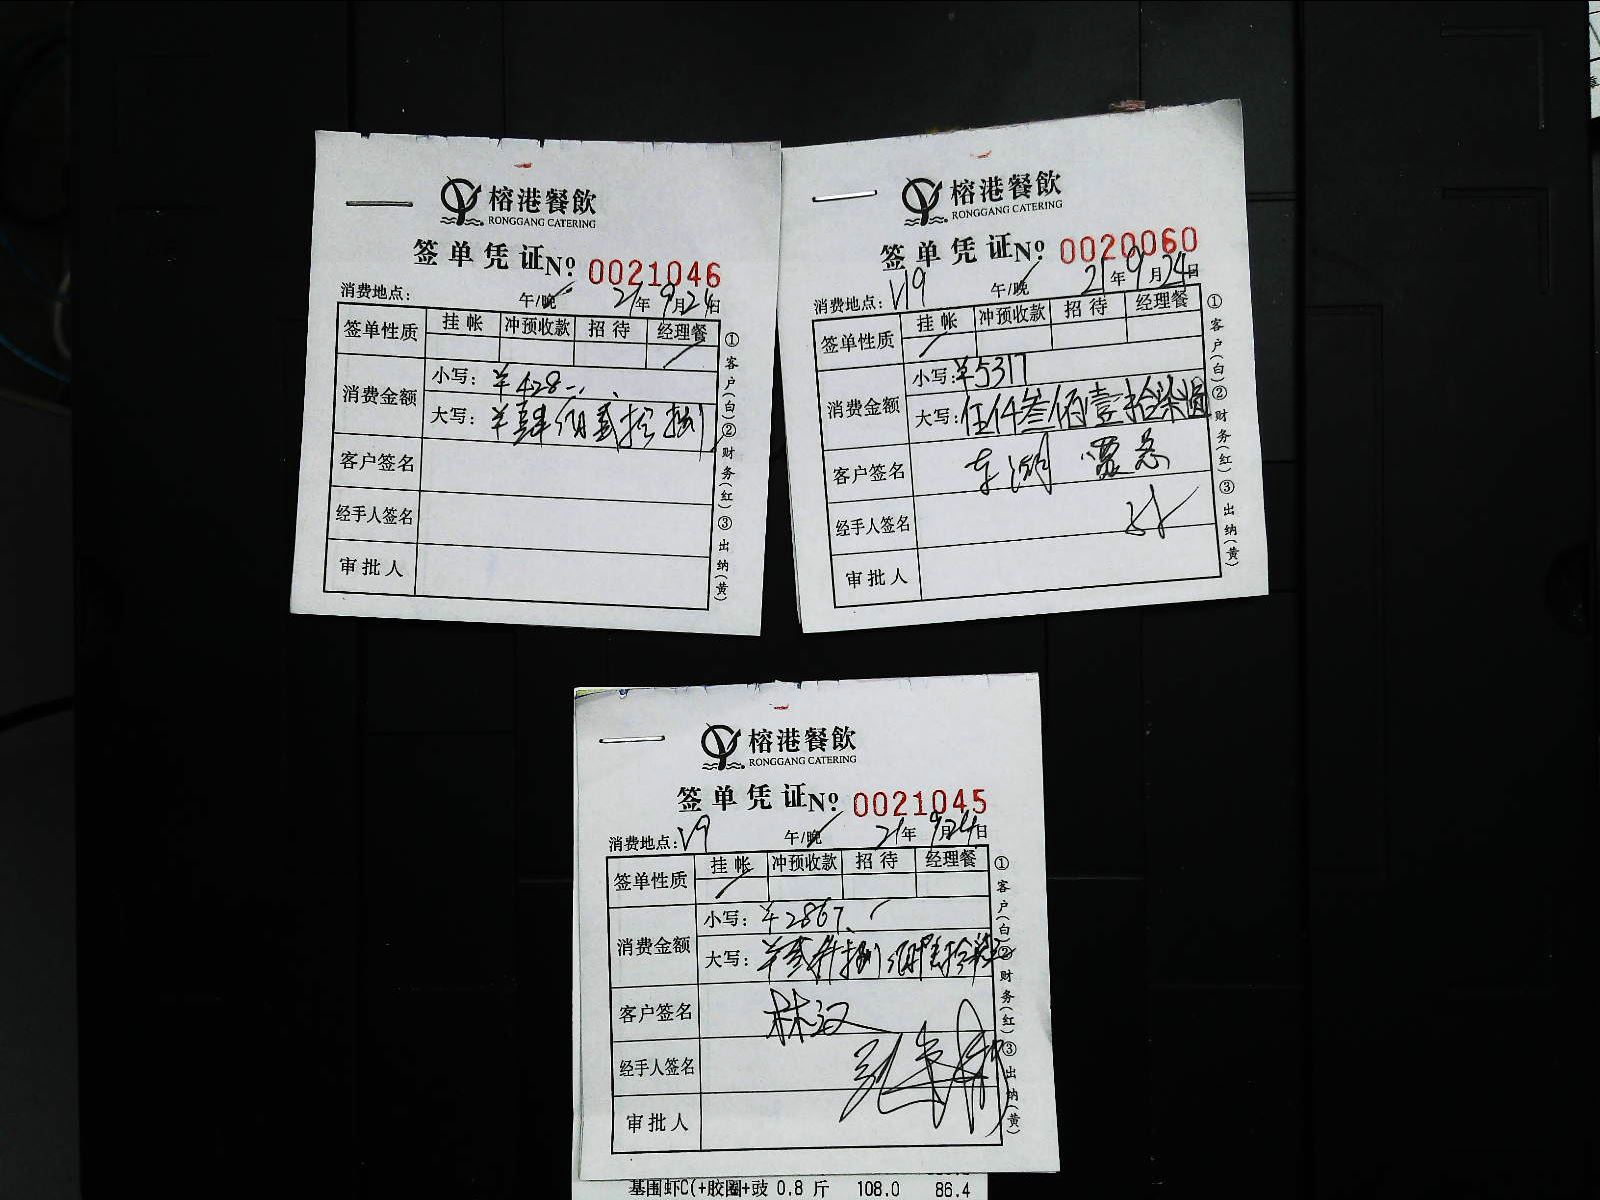 榕港餐飲
RONGGANG CATERING
签单凭证 Nº 0021046
消费地点: 午/晚 21年9月24日
签单性质 挂帐 冲预收款 招待 经理餐
消费金额
小写: ¥428
大写: ¥肆佰贰拾捌
客户签名
经手人签名
审批人
①客户(白)②财务(红)③出纳(黄)
榕港餐飲
RONGGANG CATERING
签单凭证 Nº 0020060
消费地点: V19 午/晚 21年9月24日
签单性质 挂帐 冲预收款 招待 经理餐
消费金额
小写: ¥5317
大写: 伍仟叁佰壹拾柒圆
客户签名
经手人签名
审批人
①客户(白)②财务(红)③出纳(黄)
榕港餐飲
RONGGANG CATERING
签单凭证 Nº 0021045
消费地点: V9 午/晚 21年9月24日
签单性质 挂帐 冲预收款 招待 经理餐
消费金额
小写: ¥2867
大写:
客户签名 林汉
经手人签名
审批人
①客户(白)②财务(红)③出纳(黄)
基围虾C(+胶圈+豉 0.8 斤 108.0 86.4